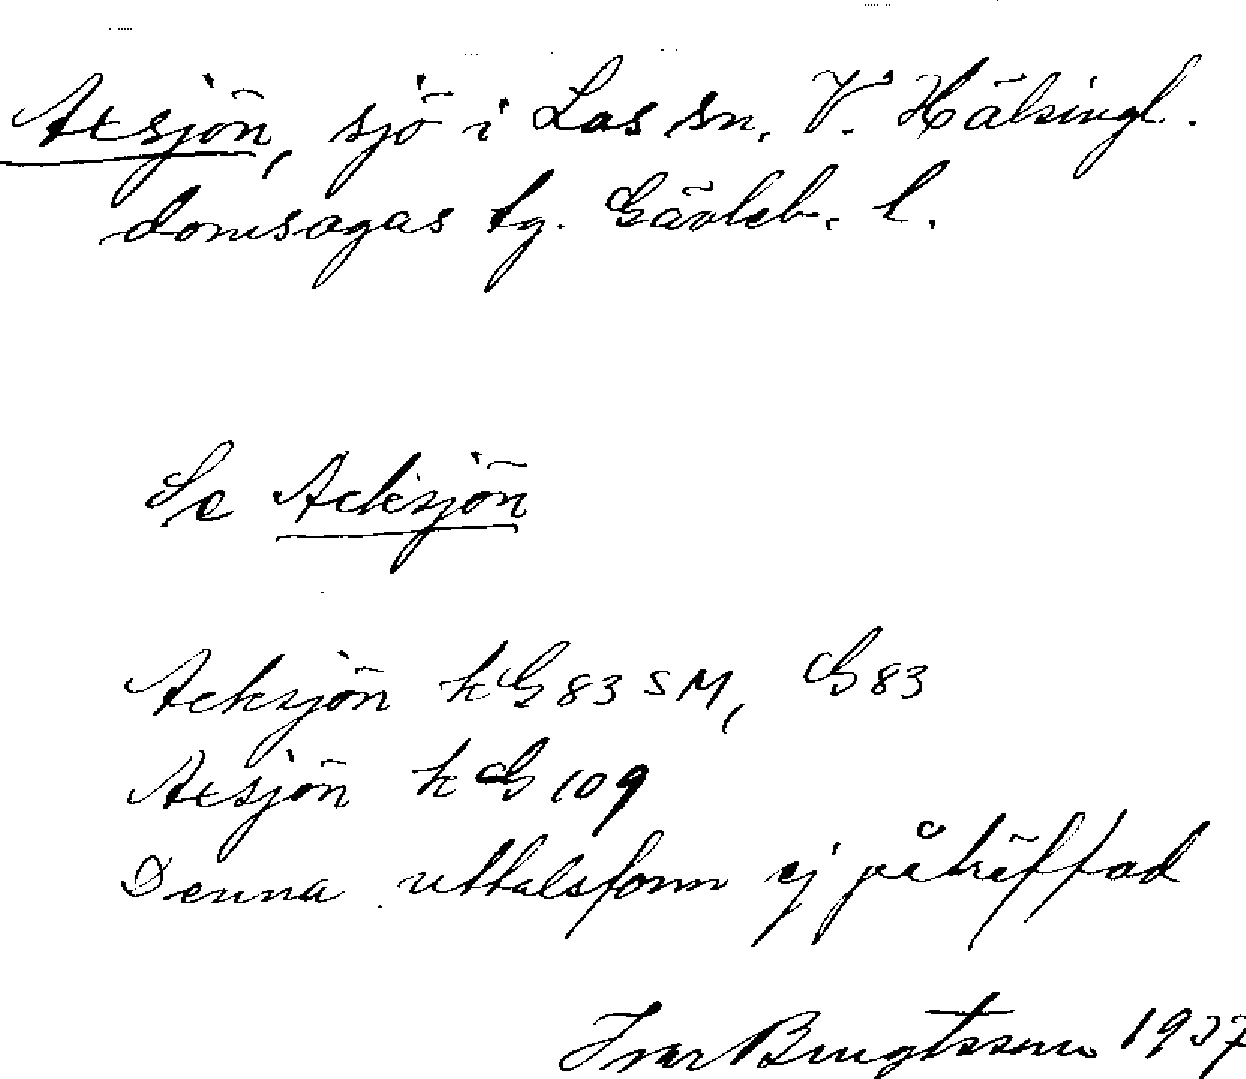 Axsjön, sjö i Los sn. V. Hälsingl.
domsagas tg. Gävleb. l.
Se Acksjön
Acksjön kG 83 SM, G 83
Axsjön k G 109
Denna uttalsform ej påträffad
Ivar Bengtsson 1937